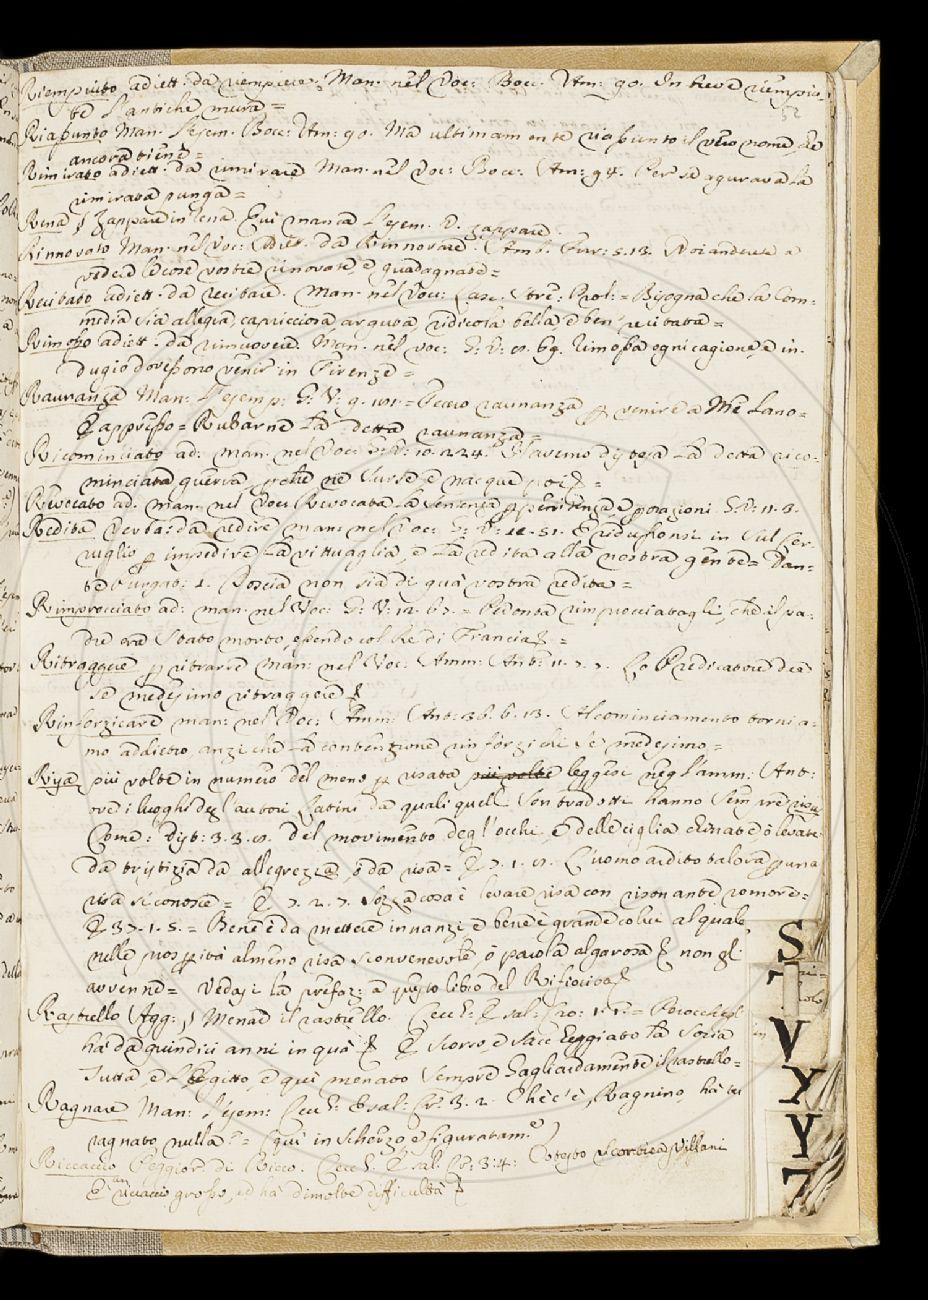 Riempiuto adiett: da riempiere. Man: nel Voc: Bocc. Am: 90. In breve riempiu-
te l'antiche mura =
52
Riapunto Man. l'esem. Bocc: Am: 90. Ma ultimamente riapunto il vero nome, che
ancora tiene =
Rimirato adiett. da rimirare Man: nel Voc: Bocc. Am: 94. Per sè agurava la
rimirata punga =
Rena / Zappare in rena. Qui manca l'esem. V. zappare.
Rinnovato Man. nel Voc: Adiett. da Rinnovare. Amb. Fur: 5.13. Voi anderete a
vedere le cose vostre rinovate, e guadagnate =
Recitato adiett. da recitare. Man. nel Voc: Lasc. Stre: Prol: = Bisogna che la Com-
media sia allegra, capricciosa arguta, ridicola bella e ben recitata =
Rimosso adiett. da rimuovere. Man. nel voc: G: V: 69. Rimossa ogni cagione, e in-
dugio dovessono venir in Firenze =
Raunanza Man: l'esemp: G: V: 9. = Fecero raunanza per venire a
& appresso = Rubarne la detta raunanza =
Ricominciato ad: man: nel Voc: G: V: 10. 224. Havemo di tosa la detta rico-
minciata guerra, perche ne surse e nacque poi & =
Rivocato ad. man. nel Voc: Rivocata la sentenza per penitenza e orazioni G. V: 11. 3.
Redita Verba: da redire man: nel Voc: G: V: 12. 51. E ridussonsi in sul Ser-
uglio per impedire la vittuaglia, e la redita alla nostra gente = Dan-
te Purgat: 1. Poscia non sia di quà vostra redita =
Rimprocciato ad: man: nel Voc: G: V: 12. 67. = Ridonta rimprocciatogli, che il pa-
dre era stato morto, essendo col Re di Francia & =
Ritraggere per ritrarre man: nel Voc: Amm: Ant: 11. 7. 7. Lo Predicatore dee
se medesimo ritraggere &
Rinforzicare man: nel Voc: Amm: Ant: 36. 6. 13. Al cominciamento torni a-
mo addietro anzi che la contenzione rinforzichi se medesimo =
Risa più volte in numero del meno per risata più volte leggesi negl'amm: Ant:
ove i luoghi degl'autori Latini da quali quell son tradotti hanno sempre risus
Come: Dist: 3. 3. 5. del movimento degl'occhi, e delle ciglia chinate, o levate
da tristizia da allegrezza, o da risa = & 7. 1. 5. L'uomo ardito talora per una
risa si conosce = & 7. 2. 7. Sozza cosa è levare risa con risonante romore =
& 37. 1. 5. = Bene è da mettere innanzi e bene è grande colui al quale
nelle prosperità almeno risa sconvenevole, o parola algorosa & non gli
avvenne = Vedasi la prefaz: a questo libro del Rifiorito &
Rastrello Agg: / Menare il rastrello. Cecch: & sal: Pro: 1. 1. =
ha da quindici anni in quà & & scorso, e saccheggiato la Soria
Tutta, e l'Egitto, e qui menato sempre gagliardamente il rastrello =
Ragnare Man: l'esem: Cecch: & sal: Pr: 3. 2. Che c'è, Ragnino, ha' tu
ragnato nulla? = (qui in scherzo e figuratam.e)
Riccaccio Peggior. di Ricco. Cecch: & sal. Pr: 3. 4: Cotesto
È un riccaccio grosso, ed ha dimolte difficultà &
S
T
V
Y
Y
7